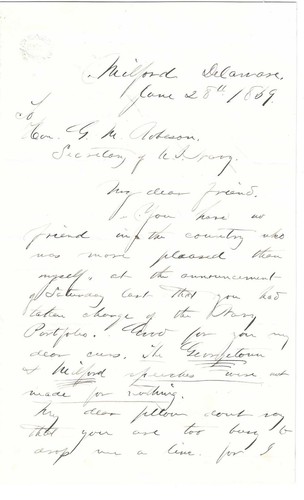 Milford Delaware.
June 28th / 869.
To
Hon. G. M. Robeson.
Secretary of U.S. Navy.
My dear friend.
You have no
friend in the country who
was more pleased than
myself, at the announcement
of Saturday last that you had
taken charge of the Navy
Portfolio. Good for you my
dear cuss. The Georgetown
& Milford speeches were not
made for nothing.
My dear fellow dont say
that you are too busy to
drop me a line. for I